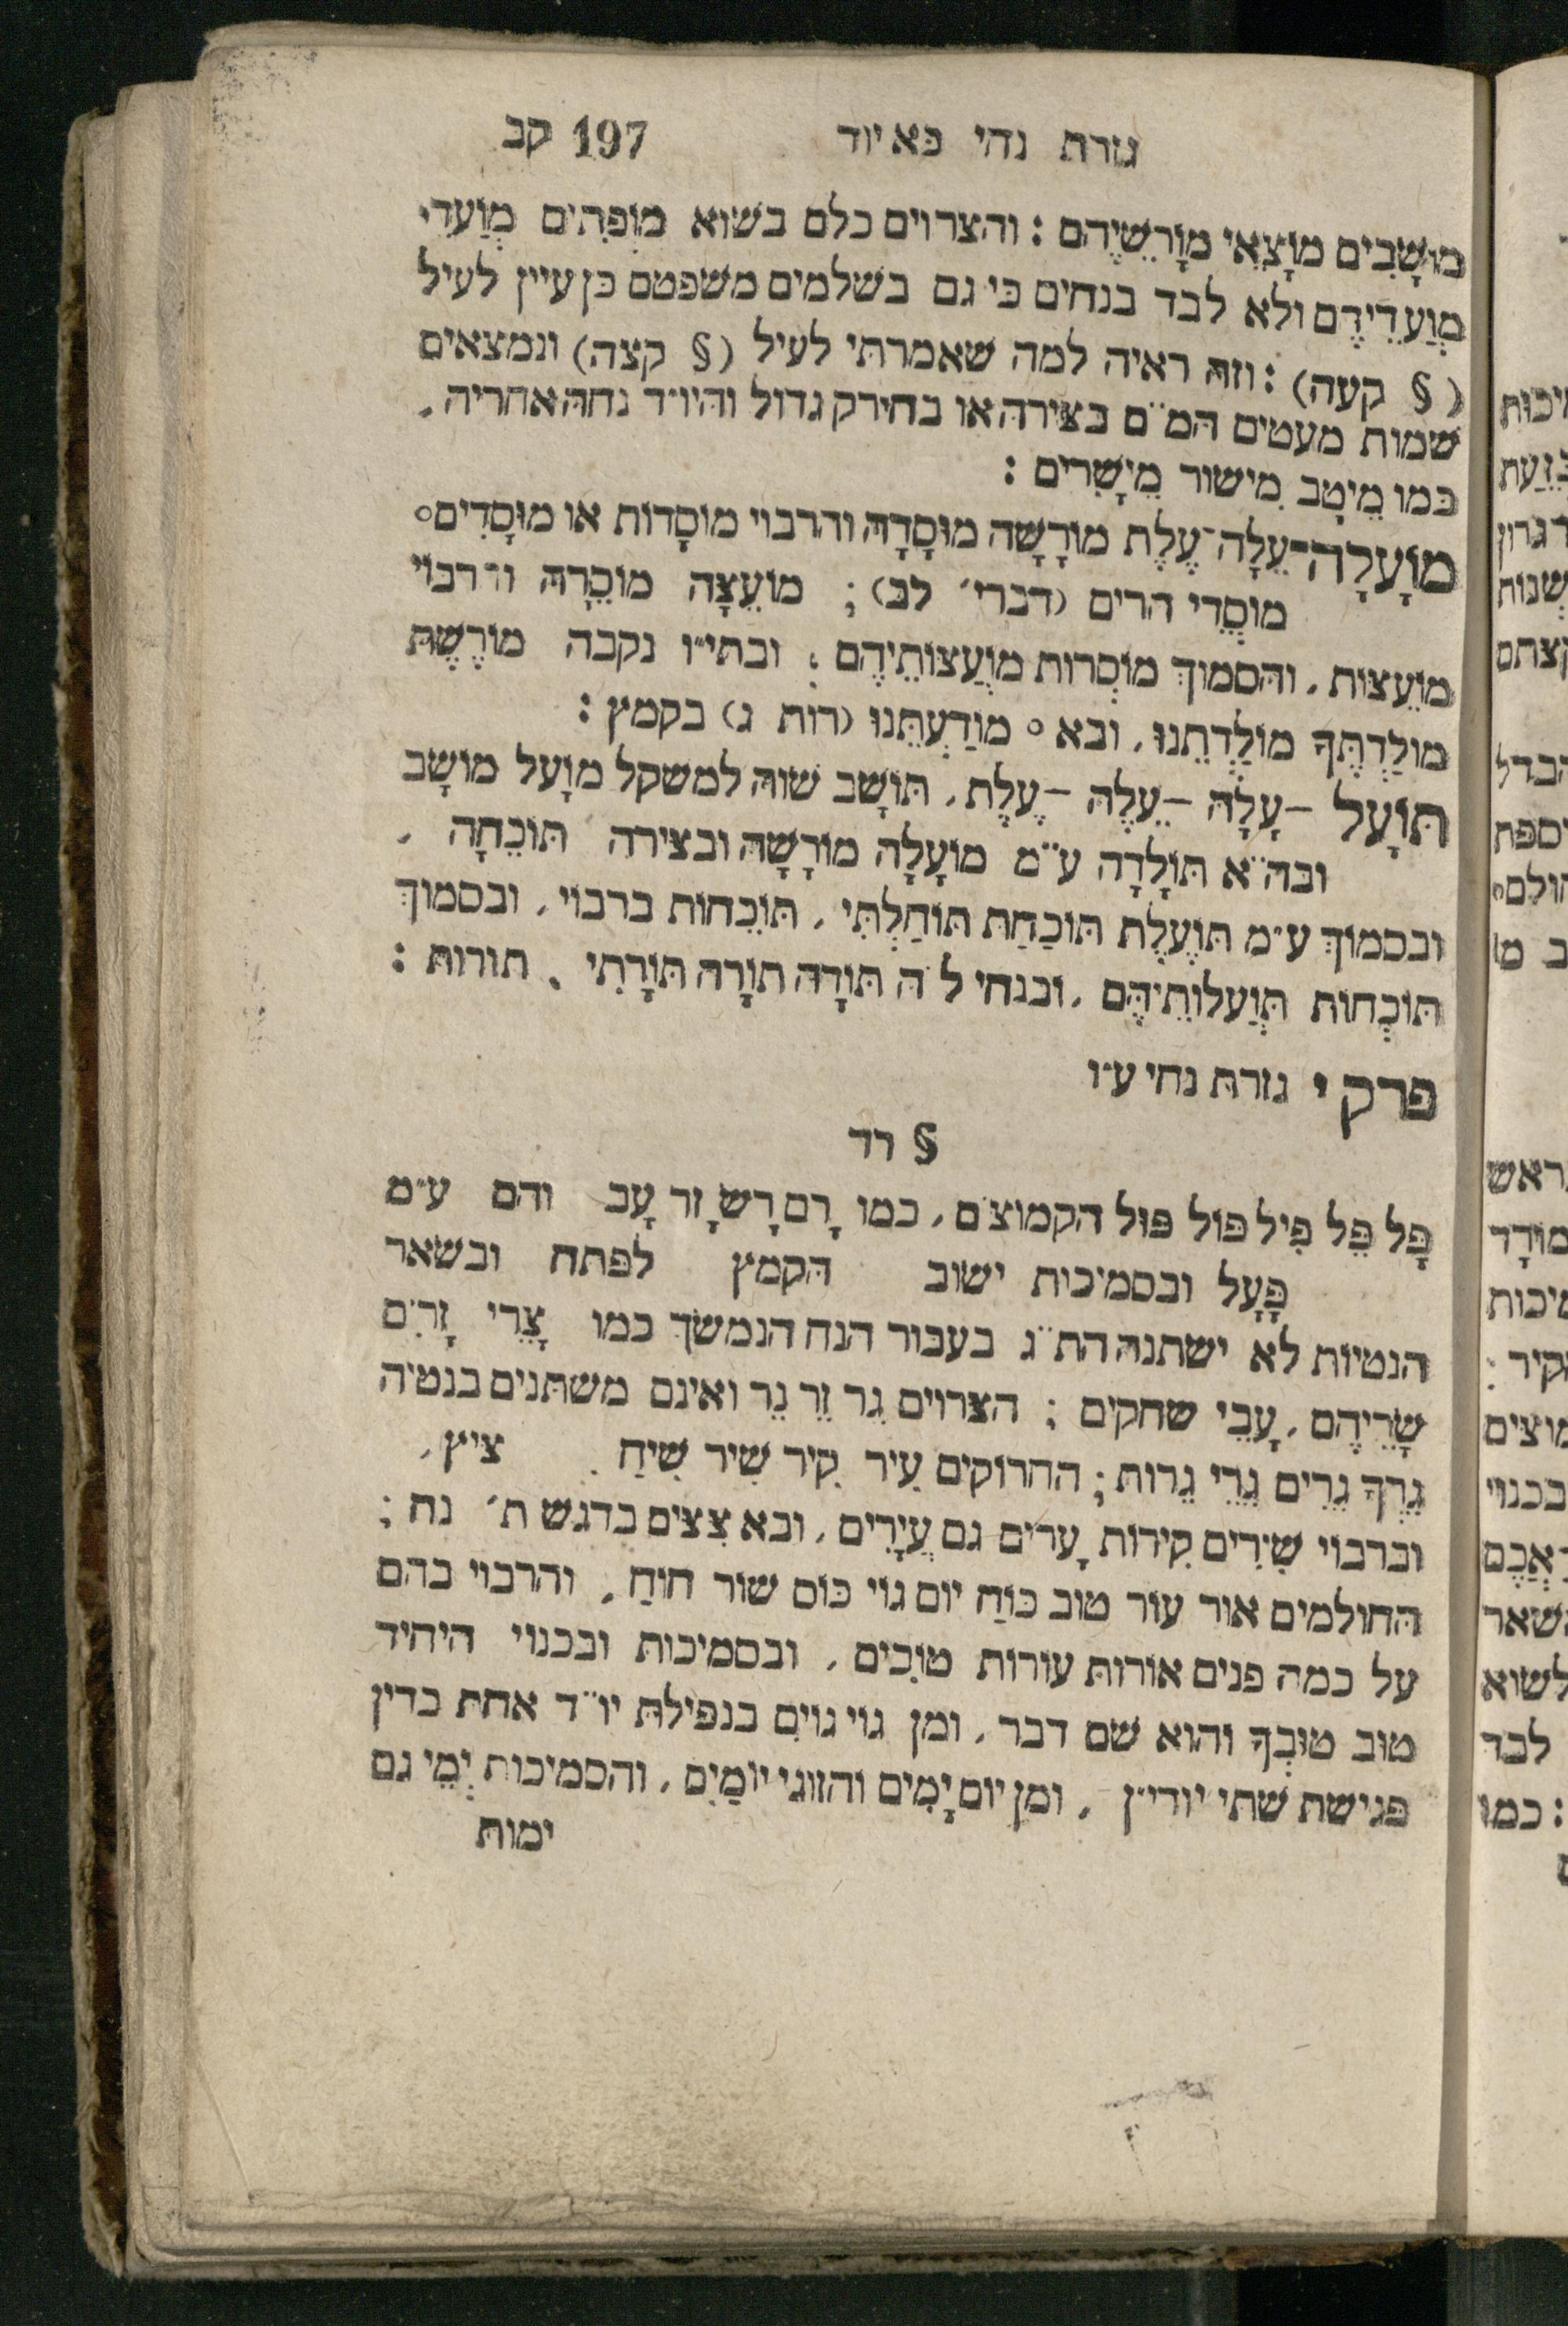 גזרת נהי כא יוד 197 קב
מוֹשָׁבִים מוֹצָאֵי מוֹרָשֵׁיהֶם : והצרוים כלם בשוא מוֹפְתִים מוֹעֲדֵי
מוֹעֲדֵיהֶם ולא לבד בנחים כי גם בשלמים משפטם כן עיין לעיל
(§ קעה) : וזה ראיה למה שאמרתי לעיל (§ קצה) ונמצאים
שמות מעטים המ״ם בצירה או בחירק גדול והיו״ד נחה אחריה,
כמו מֵיטַב מִישור מֵישָׁרִים :
מוֹעָלָה־עֵלָה־עֶלֶת מוֹרָשָׁה מוּסָדָה והרבוי מוֹסָדוֹת או מוּסָדִים°
מוֹסְדֵי הרים (דברי׳ לב) ; מוֹעֵצָה מוֹסֵרָה והרבוי
מוֹעֵצוֹת, והסמוך מוֹסְרות מוֹעֲצוֹתֵיהֶם ; ובתי״ו נקבה מוֹרֶשֶׁת
מוֹלַדְתְּךָ מוֹלַדְתֵנוּ, ובא ° מוֹדַעְתָּנוּ (רות ג) בקמץ :
תּוֹעָל –עָלָה –עֵלָה –עֶלֶת, תּוֹשָׁב שוה למשקל מוֹעָל מוֹשָׁב
ובה״א תּוֹלָדָה ע״מ מוֹעָלָה מוֹרָשָׁה ובצירה תּוֹכֵחָה,
ובסמוך ע״מ תּוֹעֶלֶת תּוֹכַחַת תּוֹחַלְתִּי, תּוֹכֵחוֹת ברבוי, ובסמוך
תּוֹכְחוֹת תּוֹעֲלוֹתֵיהֶם, ובנחי ל״ה תּוֹרָה תּוֹרָה תּוֹרָתִי . תורות :
פרק י גזרת נחי ע״ו
§ רד
פָּל פֵּל פִּיל פּוֹל פּוּל הקמוצים, כמו רָם רָשׁ זָר עָב והם ע״מ
פָּעָל ובסמיכות ישוב הקמץ לפתח ובשאר
הנטיות לא ישתנה הת״ג בעבור הנח הנמשך כמו צָרֵי זָרִים
שָׂרֵיהֶם, עָבֵי שחקים ; הצרוים גֵר זֵר נֵר ואינם משתנים בנטיה
גֵרְךָ גֵרִים גֵרֵי גֵרות ; החרוקים עִיר קִיר שִׁיר שִׂיחַ ציץ,
וברבוי שִׁירִים קִירוֹת עָרים גם עֲיָרִים, ובא צִצִּים בדגש ת׳ נח ;
החולמים אור עור טוב כּוֹחַ יום גוי כּוֹס שור חוֹחַ, והרבוי בהם
על כמה פנים אורות עורות טוֹבִים, ובסמיכות ובכנוי היחיד
טוּב טוּבְךָ והוא שם דבר, ומן גוי גוים בנפילת יו״ד אחת כדין
פגישת שתי יודי״ן, ומן יום יָמִים והזוגי יוֹמַיִם, והסמיכות יְמֵי גם
ימות